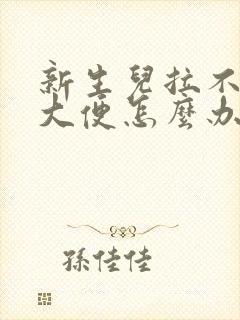 新生兒拉不
大便怎麼办
孫佳佳